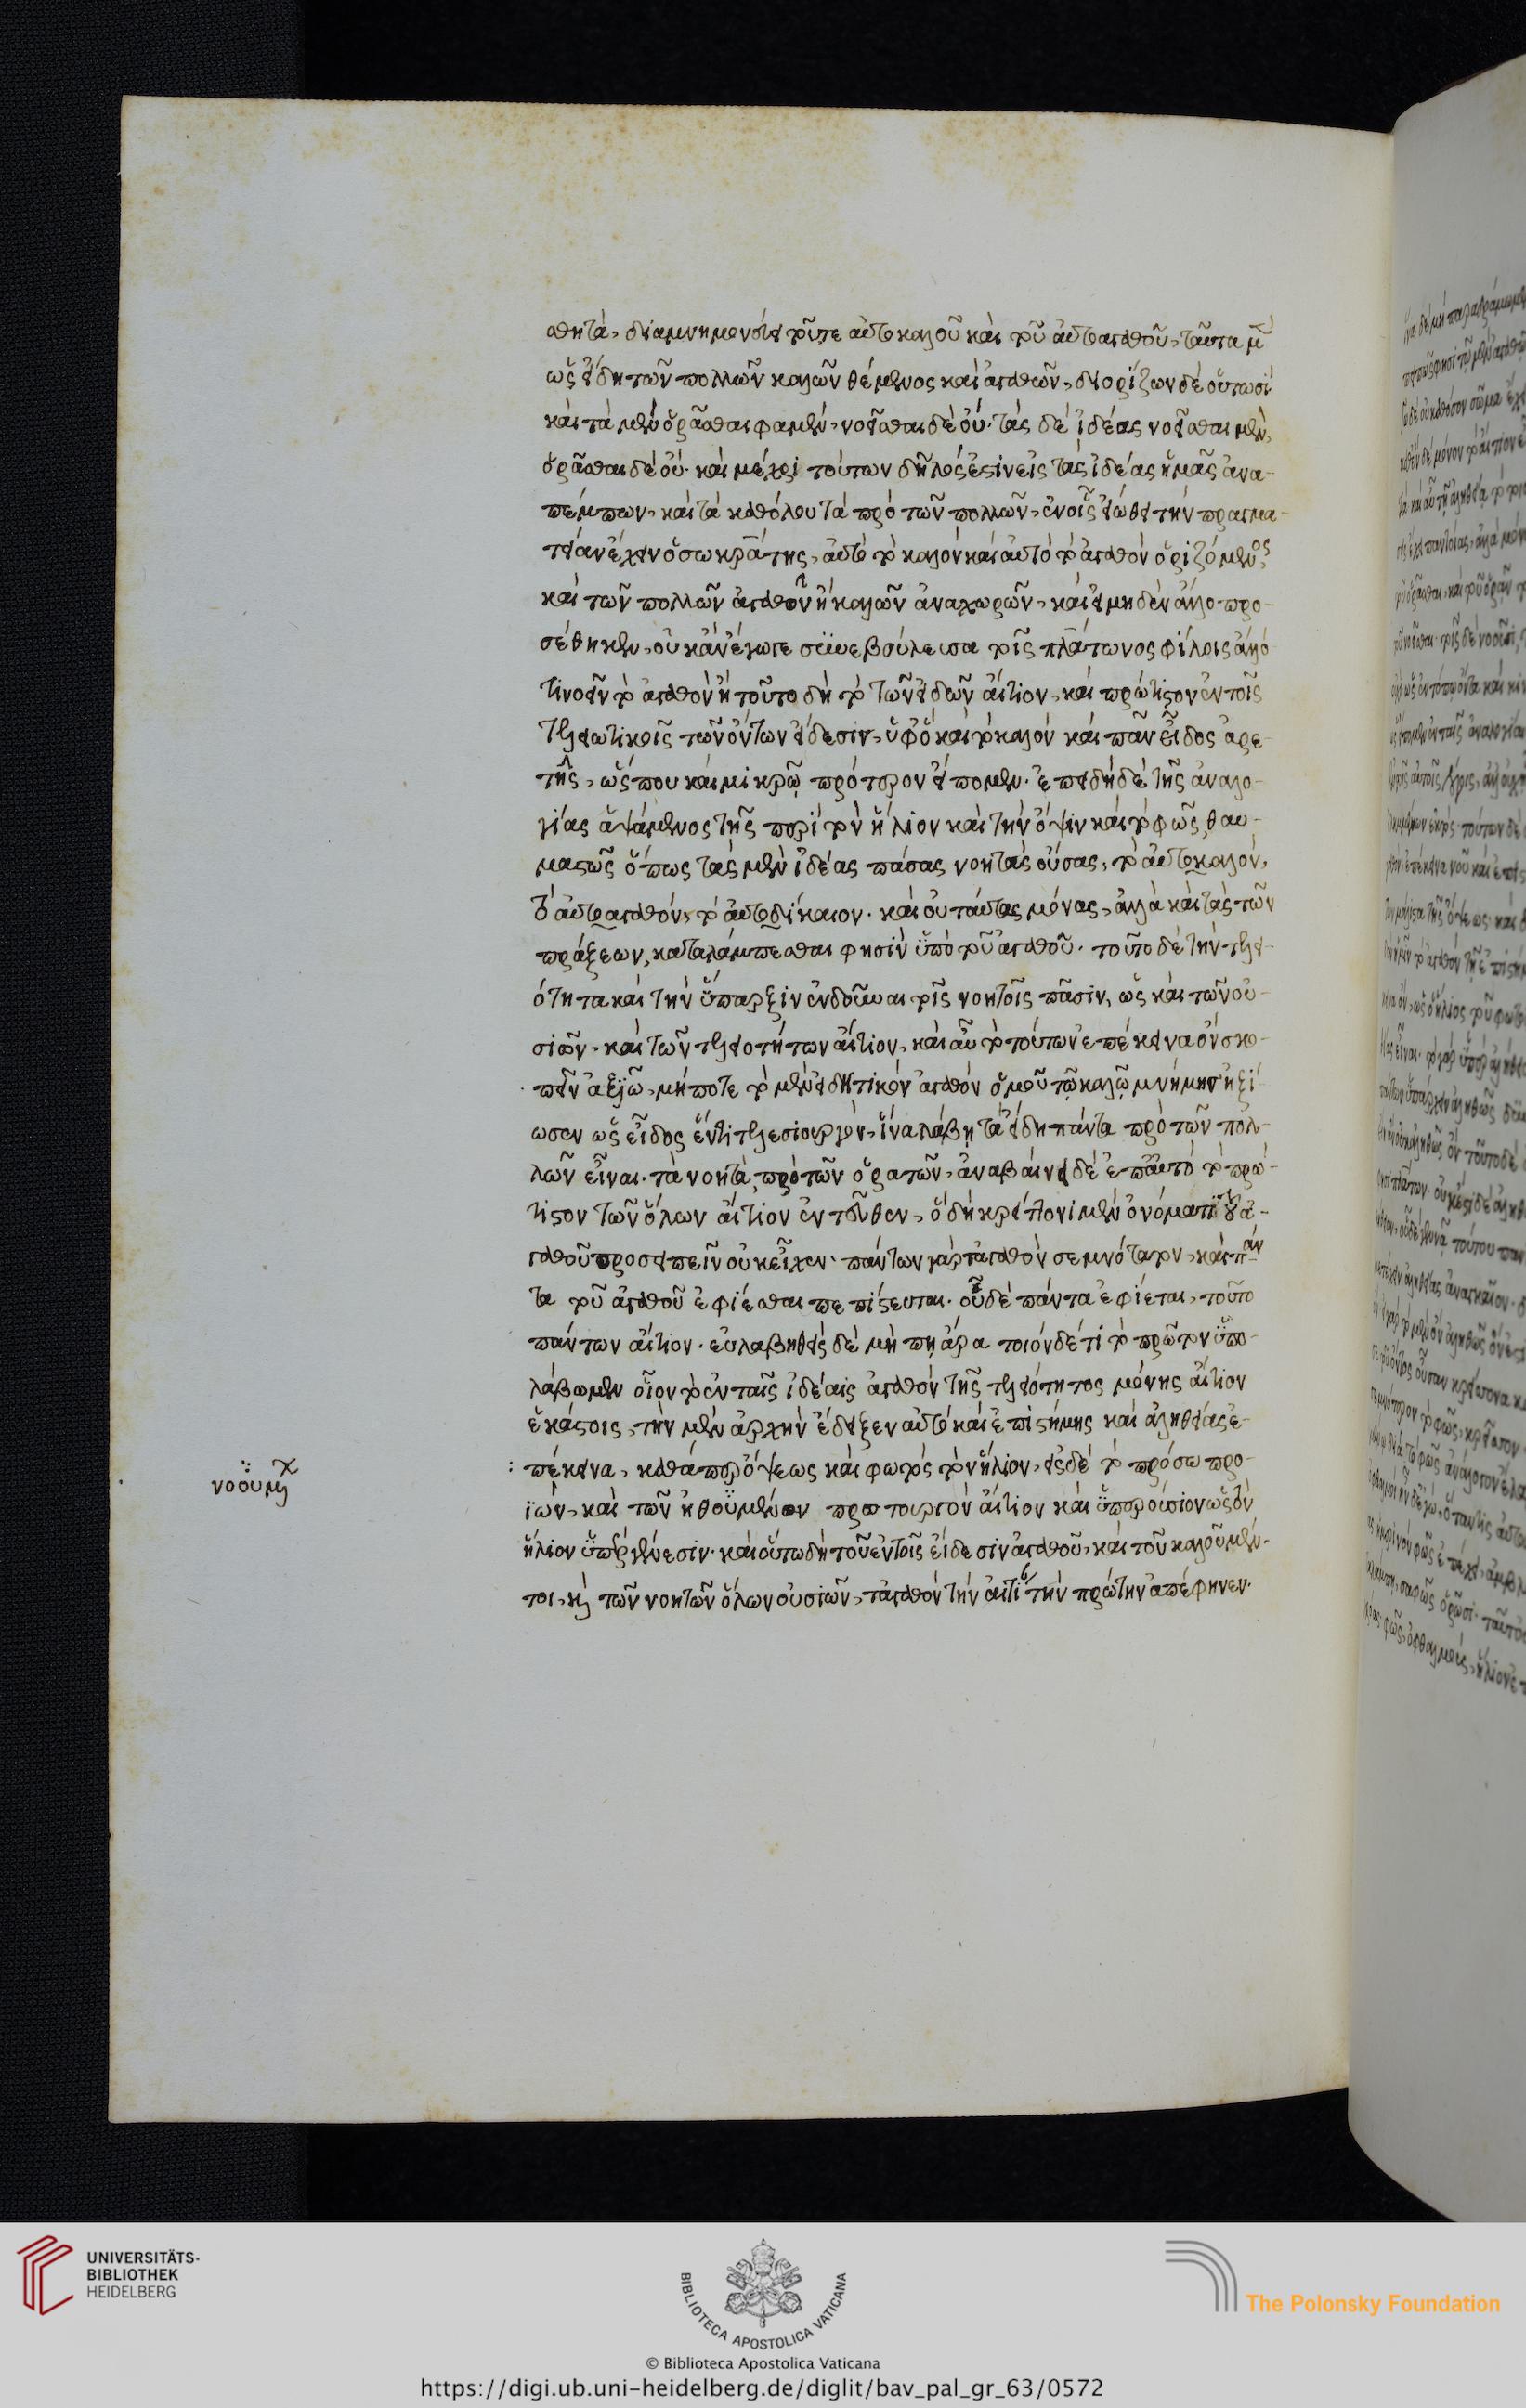 σθητά, διαμνημονεύει τοῦτε αὐτοκαλοῦ καὶ τοῦ αὐτοαγαθοῦ, ταῦτα μὲν
ὡς εἴδη τῶν πολλῶν καλῶν θέμενος καὶ ἀγαθῶν, διορίζων δὲ οὕτωσὶ
καὶ τὰ μὲν ὁρᾶσθαι φαμὲν, νοεῖσθαι δὲ οὔ. τὰς δὲ ἰδέας νοεῖσθαι μὲν,
ὁρᾶσθαι δὲ οὔ. καὶ μέχρι τούτων δῆλός ἐστιν εἰς τὰς ἰδέας ἡμᾶς ἀνα-
πέμπων, καὶ τὰ καθόλου τὰ πρὸ τῶν πολλῶν, ἐν οἷς εἰώθει τὴν πραγμα-
τείαν ἔχειν ὁ σωκράτης, αὐτὸ τὸ καλὸν καὶ αὐτὸ τὸ ἀγαθὸν ὁριζόμενος,
καὶ τῶν πολλῶν ἀγαθῶν ἢ καλῶν ἀναχωρῶν, καὶ εἰ μηδὲν ἄλλο προ-
σέθηκεν, οὐκ ἂν ἔγωγε συνεβούλευσα τοῖς πλάτωνος φίλοις ἄλλό
τι νοεῖν τὸ ἀγαθὸν ἢ τοῦτο δὴ τὸ τῶν εἰδῶν αἴτιον, καὶ πρώτιστον ἐν τοῖς
τελειωτικοῖς τῶν ὄντων εἴδεσιν, ὑφ' ὃ καὶ τὸ καλὸν καὶ πᾶν εἶδος ἀρε-
τῆς, ὥς που καὶ μικρῷ πρότερον εἴπομεν. ἐπειδὴ δὲ τῆς ἀναλο-
γίας ἁψάμενος τῆς περὶ τὸν ἥλιον καὶ τὴν ὄψιν καὶ τὸ φῶς, θαυ-
μαστῶς ὅπως τὰς μὲν ἰδέας πάσας νοητὰς οὔσας, τὸ αὐτοκαλόν,
τὸ αὐτοαγαθόν, τὸ αὐτοδίκαιον. καὶ οὐ ταύτας μόνας, ἀλλὰ καὶ τὰς τῶν
πράξεων, καταλάμπεσθαι φησὶν ὑπὸ τοῦ ἀγαθοῦ. τοῦτο δὲ τὴν τελει-
ότητα καὶ τὴν ὕπαρξιν ἐνδοῦναι τοῖς νοητοῖς πᾶσιν, ὡς καὶ τῶν οὐ-
σιῶν, καὶ τῶν τελειοτήτων αἴτιον, καὶ αὖ τὸ τούτων ἐπέκεινα ὂν σκο-
πεῖν ἀξιῶ, μήποτε τὸ μὲν εἰδητικὸν ἀγαθὸν ὁμοῦ τῷ καλῷ μνήμης ἠξί-
ωσεν ὡς εἶδος ἕν τι τελεσιουργὸν, ἵνα λάβῃ τὰ εἴδη πάντα πρὸ τῶν πολ-
λῶν εἶναι. τὰ νοητὰ, πρὸ τῶν ὁρατῶν, ἀναβαίνει δὲ ἐπ' αὐτὸ τὸ πρώ-
τιστον τῶν ὅλων αἴτιον ἐντεῦθεν, ὃ δὴ κρείττονι μὲν ὀνόματι τοῦ ἀ-
γαθοῦ προσειπεῖν οὐκ εἶχεν. πάντων γὰρ τἀγαθὸν σεμνότατον, καὶ πάν
τα τοῦ ἀγαθοῦ ἐφίεσθαι πεπίστευται. οὗ δὲ πάντα ἐφίεται, τοῦτο
πάντων αἴτιον. εὐλαβηθεὶς δὲ μή πῃ ἄρα τοιόνδέ τι τὸ πρῶτον ὑπο-
λάβωμεν οἷον τὸ ἐν ταῖς ἰδέαις ἀγαθὸν τῆς τελειότητος μόνης αἴτιον
ἑκάστοις, τὴν μὲν ἀρχὴν ἔδειξεν αὐτὸ καὶ ἐπιστήμης καὶ ἀληθείας ἐ-
πέκεινα, καθάπερ ὄψεως καὶ φωτὸς τὸν ἥλιον, εἰς δὲ τὸ πρόσω προ-
νοούμεν
ϊών, καὶ τῶν ἠθουμένων πρωτουργὸν αἴτιον καὶ ὑπερούσιον ὡς τὸν
ἥλιον ὑπὲρ γένεσιν. καὶ οὕτω δὴ τοῦ ἐν τοῖς εἴδεσιν ἀγαθοῦ, καὶ τοῦ καλοῦ μέν-
τοι, καὶ τῶν νοητῶν ὅλων οὐσιῶν, τἀγαθὸν τὴν αἰτίαν τὴν πρώτην ἀπέφηνεν.
UNIVERSITÄTS-
BIBLIOTHEK
HEIDELBERG
BIBLIOTECA APOSTOLICA VATICANA
The Polonsky Foundation
© Biblioteca Apostolica Vaticana
https://digi.ub.uni-heidelberg.de/diglit/bav_pal_gr_63/0572